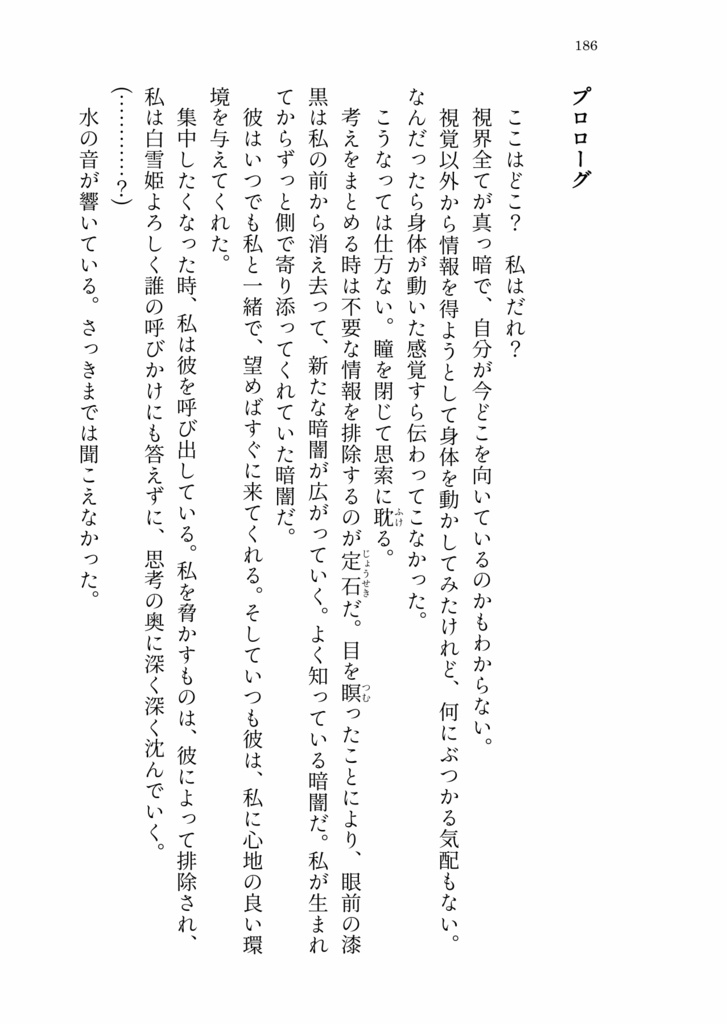 186
プロローグ
ここはどこ？　私はだれ？
視界全てが真っ暗で、自分が今どこを向いているのかもわからない。
視覚以外から情報を得ようとして身体を動かしてみたけれど、何にぶつかる気配もない。
なんだったら身体が動いた感覚すら伝わってこなかった。
こうなっては仕方ない。瞳を閉じて思索に耽ふける。
考えをまとめる時は不要な情報を排除するのが定石じょうせきだ。目を瞑つむったことにより、眼前の漆
黒は私の前から消え去って、新たな暗闇が広がっていく。よく知っている暗闇だ。私が生まれ
てからずっと側で寄り添ってくれていた暗闇だ。
彼はいつでも私と一緒で、望めばすぐに来てくれる。そしていつも彼は、私に心地の良い環
境を与えてくれた。
集中したくなった時、私は彼を呼び出している。私を脅かすものは、彼によって排除され、
私は白雪姫よろしく誰の呼びかけにも答えずに、思考の奥に深く深く沈んでいく。
（…………？）
水の音が響いている。さっきまでは聞こえなかった。